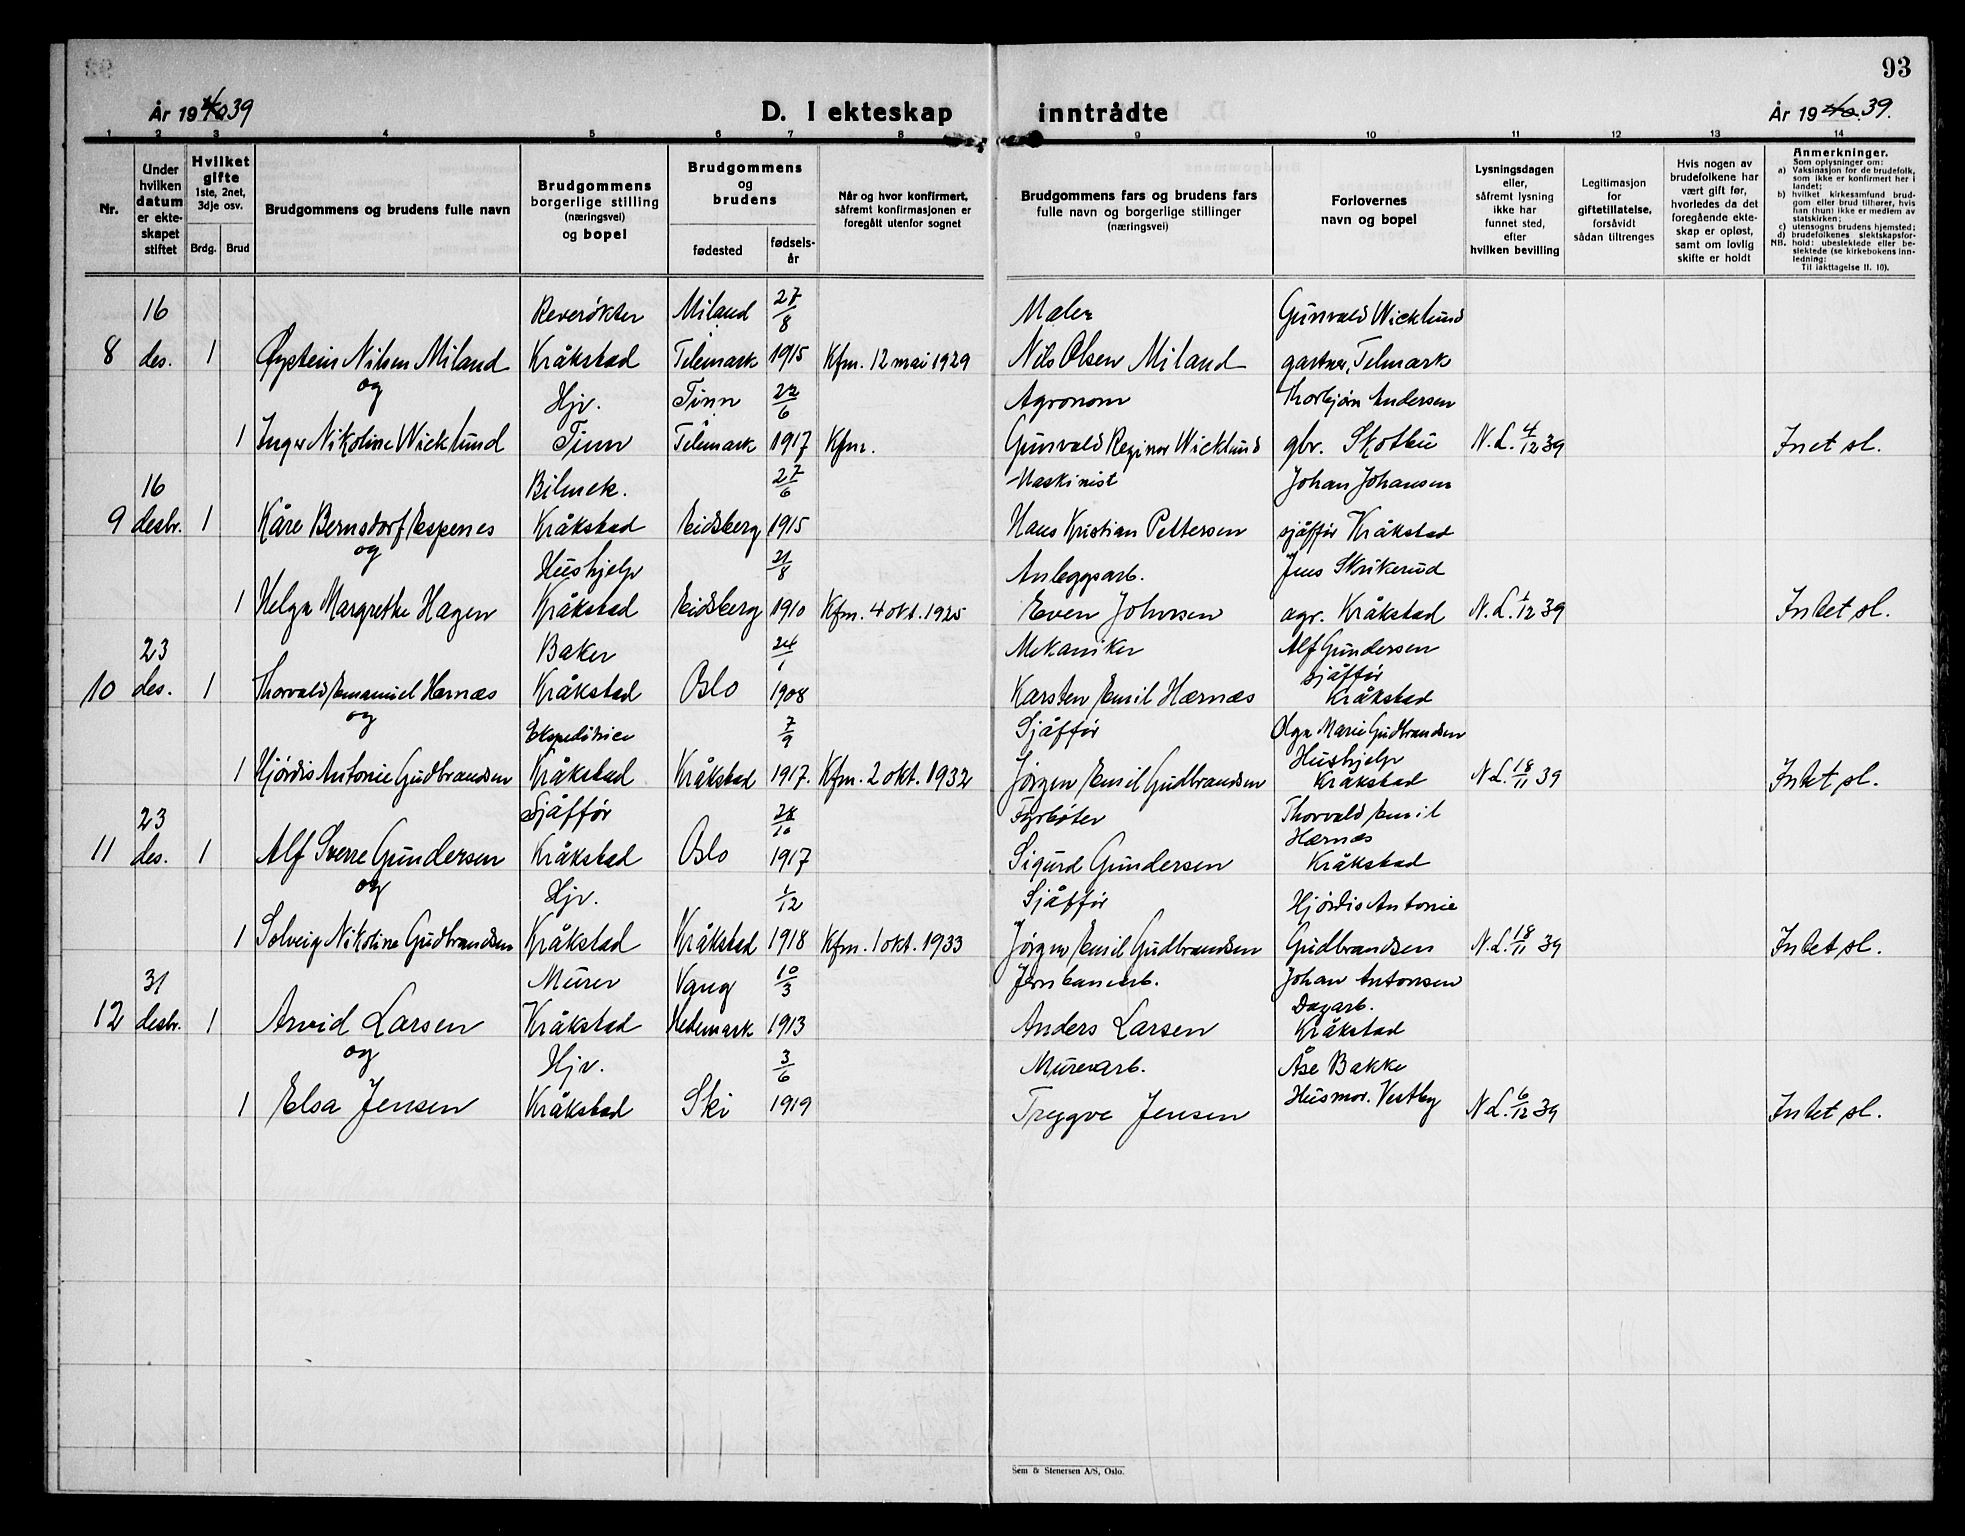 93
År 19 40 39
D. I ekteskap inntrådte
År 19 40. 39.
1 2 3 4 5 6 7 8 9 10 11 12 13 14
Nr.
Under hvilken datum er ekteskapet stiftet
Hvilket gifte
1ste, 2net, 3dje osv.
Brdg. Brud
Brudgommens og brudens fulle navn
Brudgommens borgerlige stilling (næringsvei) og bopel
Brudgommens og brudens
fødested
fødselsår
Når og hvor konfirmert, såfremt konfirmasjonen er foregått utenfor sognet
Brudgommens fars og brudens fars fulle navn og borgerlige stillinger (næringsvei)
Forlovernes navn og bopel
Lysningsdagen eller, såfremt lysning ikke har funnet sted, efter hvilken bevilling
Legitimasjon for giftetillatelse, forsåvidt sådan tiltrenges
Hvis nogen av brudefolkene har vært gift før, hvorledes da det foregående ekteskap er opløst, samt om lovlig skifte er holdt
Anmerkninger.
Som oplysninger om:
a) Vaksinasjon for de brudefolk, som ikke er konfirmert her i landet;
b) hvilket kirkesamfund brudgom eller brud tilhører, hvis han (hun) ikke er medlem av statskirken;
c) utensogns brudens hjemsted;
d) brudefolkenes slektskapsforhold: ubeslektede eller beslektede (se kirkebokens innledning:
NB. Til iakttagelse II. 10).
16 Reverøkter Miland 27/8 Maler Gunvald Wicklund
8 des. 1 Øystein Nilsen Miland Kråkstad Telemark 1915 Kfm. 12 mai 1929 Nils Olsen Miland gartner, Telmark
og Hjv. Tinn 22/6 Agronom Thorbjørn Andersen
1 Inger Nikoline Wicklund Tinn Telemark 1917 Kfm. Gunvald Reginor Wicklund gbr. Skotbu N.L. 4/12 39 Intet sl.
16 Bilmek. 27/6 Maskinist Johan Johansen
9 desbr. 1 Kåre Bernsdorf Espenes Kråkstad Eidsberg 1915 Hans Kristian Pettersen sjåffør Kråkstad
og Hushjelp 21/8 Anleggsarb. Jens Skrikerud
1 Helga Margrethe Hagen Kråkstad Eidsberg 1910 Kfm. 4 okt. 1925 Even Johnsen agr. Kråkstad N.L. 1/12 39 Intet sl.
23 Baker 24/1 Mekaniker Alf Gundersen
sjåffør
10 des. 1 Thorvald Emanuel Hernæs Kråkstad Oslo 1908 Karsten Emil Hærnæs Kråkstad
og Ekspeditrice 7/9 Sjåffør Olga Marie Gudbrandsen
Hushjelp
1 Hjørdis Antonie Gudbrandsen Kråkstad Kråkstad 1917. Kfm. 2 okt. 1932 Jørgen Emil Gudbrandsen Kråkstad N.L. 18/11 39 Intet sl.
23 Sjåffør 28/10 Fyrbøter Thorvald Emil
Hærnæs
11 des. 1 Alf Sverre Gundersen Kråkstad Oslo 1917 Sigurd Gundersen Kråkstad
og Hjv. 1/12 Sjåffør Hjørdis Antonie
1 Solveig Nikoline Gudbrandsen Kråkstad Kråkstad 1918 Kfm. 1 okt. 1933 Jørgen Emil Gudbrandsen Gudbrandsen N.L. 18/11 39 Intet sl.
31 Murer Vang 10/3 Jernbanearb. Johan Antonsen
Dagarb.
12 desbr. 1 Arvid Larsen Kråkstad Hedemark 1913 Anders Larsen Kråkstad
og Hjv. 3/6 Murerarb. Åse Bakke
1 Elsa Jensen Kråkstad Ski 1919 Trygve Jensen Husmor. Vestby N.L. 6/12 39 Intet sl.
Sem & Stenersen A/S, Oslo.